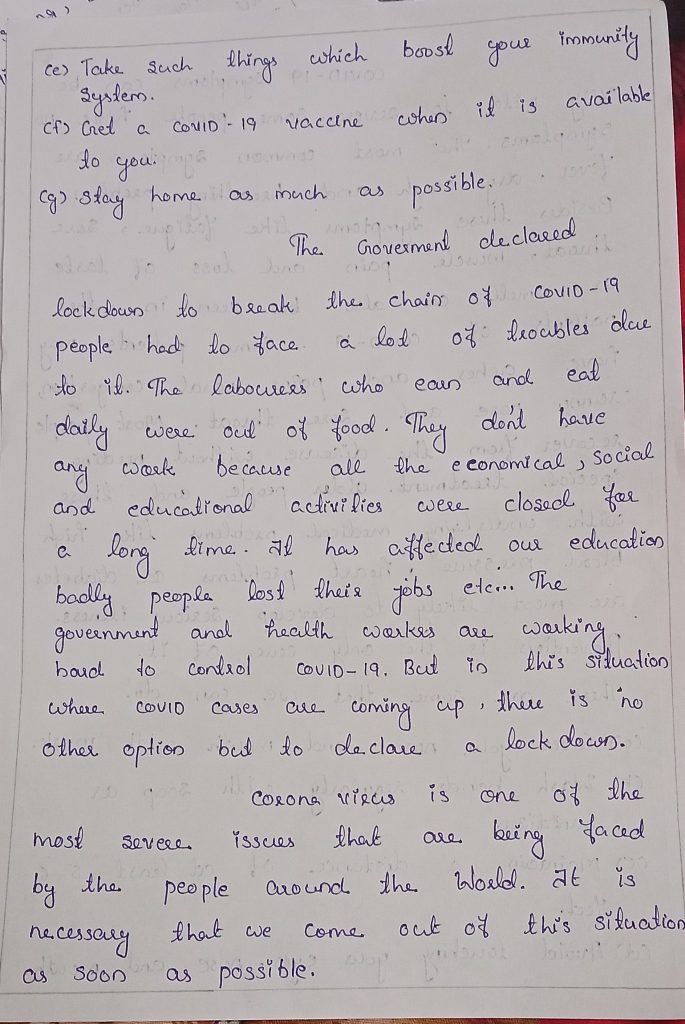 (e) Take such things which boost your immunity
system.
(f) Get a COVID-19 vaccine when it is available
to you.
(g) Stay home as much as possible.
The Goverment declared
lockdown to break the chain of COVID-19
people had to face a lot of troubles due
to it. The labourers who earn and eat
daily were out of food. They don't have
any work because all the economical, social
and educational activities were closed for
a long time. It has affected our education
badly people lost their jobs etc... The
government and health workes are working
hard to control COVID-19. But in this situation
where COVID cases are coming up, there is no
other option but to declare a lock down.
Corona virus is one of the
most severe issues that are being faced
by the people around the World. It is
necessary that we come out of this situation
as soon as possible.